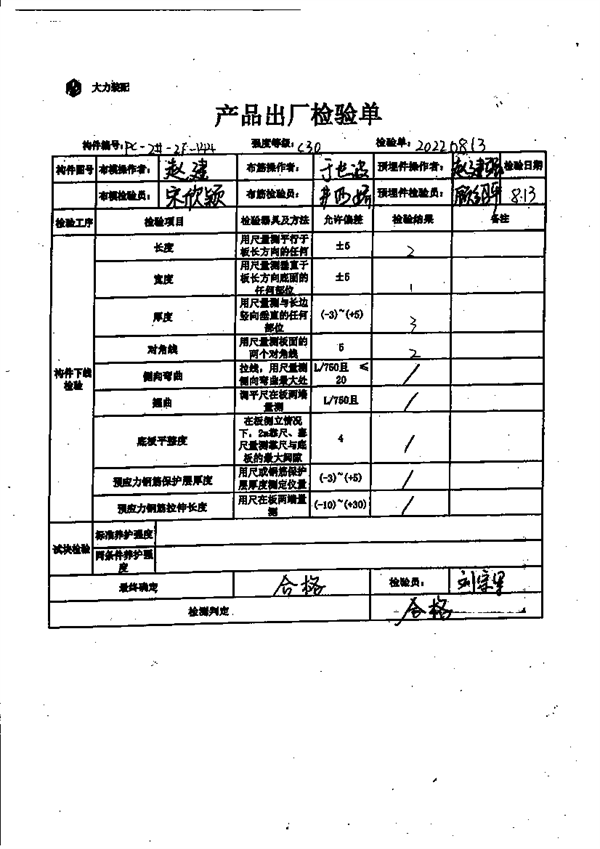 大力装配
产品出厂检验单
构件编号：PC-2#-2F-144 强度等级：C30 检验单：20220813
构件图号 布模操作者：赵建 布筋操作者： 预埋件操作者：赵建强 检验日期
布模检验员：宋欣颖 布筋检验员： 预埋件检验员： 8.13
检验工序 检验项目 检验器具及方法 允许偏差 检验结果 备注
构件下线检验
长度 用尺量测平行于板长方向的任何 ±5 2
宽度 用尺量测垂直于板长方向底面的任何部位 ±5 1
厚度 用尺量测与长边竖向垂直的任何部位 (-3)~(+5) 3
对角线 用尺量测板面的两个对角线 5 2
侧向弯曲 拉线，用尺量测侧向弯曲最大处 L/750且 ≤20 /
翘曲 调平尺在板两端量测 L/750且 /
底板平整度 在板侧立情况下，2m靠尺、塞尺量测靠尺与底板的最大间隙 4 /
预应力钢筋保护层厚度 用尺或钢筋保护层厚度测定仪量 (-3)~(+5) /
预应力钢筋拉伸长度 用尺在板两端量测 (-10)~(+30) /
试块检验 标准养护强度
同条件养护强度
最终确定 合格 检验员：
检测判定 合格